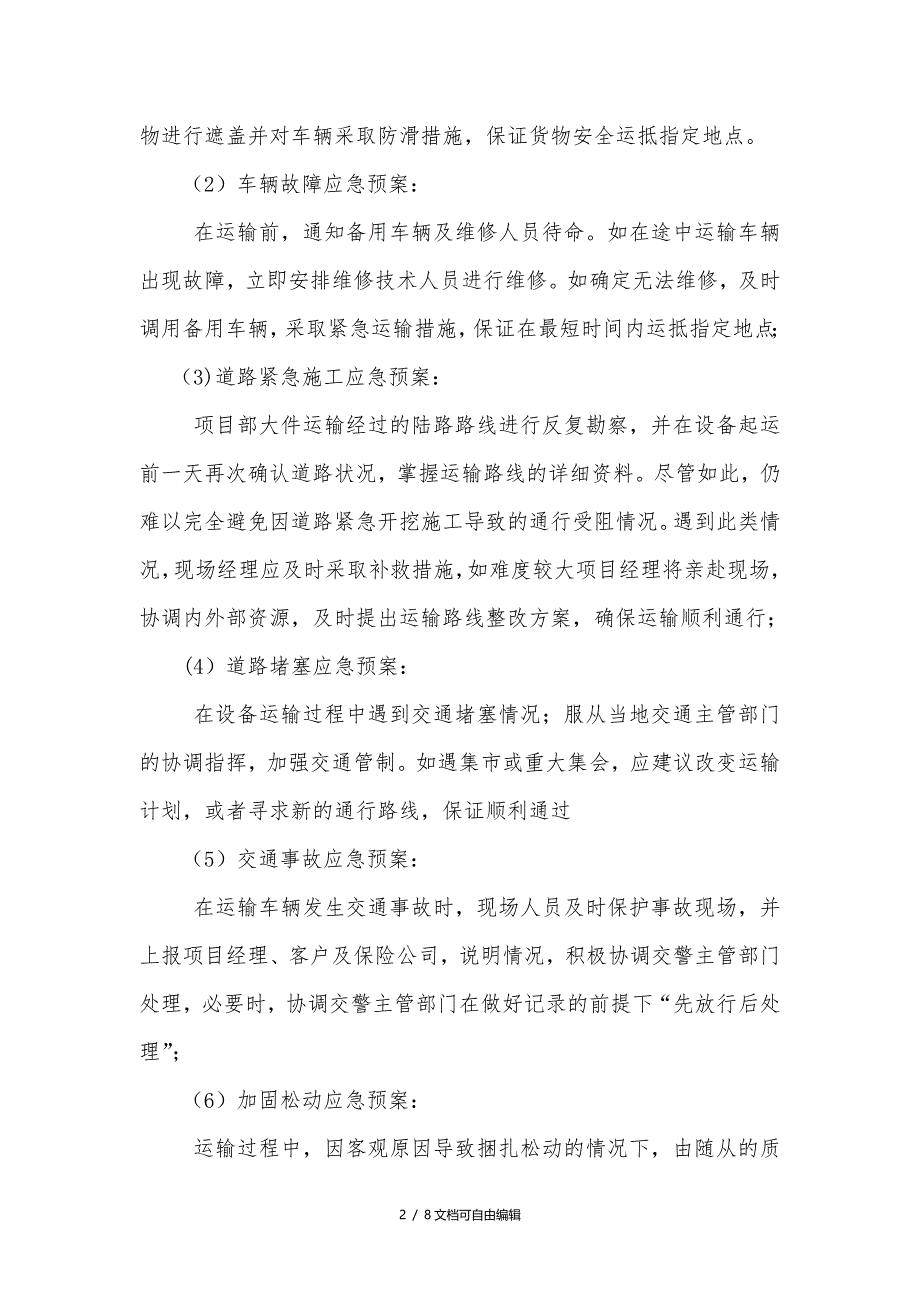 物进行遮盖并对车辆采取防滑措施，保证货物安全运抵指定地点。
（2）车辆故障应急预案：
在运输前，通知备用车辆及维修人员待命。如在途中运输车辆
出现故障，立即安排维修技术人员进行维修。如确定无法维修，及时
调用备用车辆，采取紧急运输措施，保证在最短时间内运抵指定地点；
（3)道路紧急施工应急预案：
项目部大件运输经过的陆路路线进行反复勘察，并在设备起运
前一天再次确认道路状况，掌握运输路线的详细资料。尽管如此，仍
难以完全避免因道路紧急开挖施工导致的通行受阻情况。遇到此类情
况，现场经理应及时采取补救措施，如难度较大项目经理将亲赴现场，
协调内外部资源，及时提出运输路线整改方案，确保运输顺利通行；
(4）道路堵塞应急预案：
在设备运输过程中遇到交通堵塞情况；服从当地交通主管部门
的协调指挥，加强交通管制。如遇集市或重大集会，应建议改变运输
计划，或者寻求新的通行路线，保证顺利通过
（5）交通事故应急预案：
在运输车辆发生交通事故时，现场人员及时保护事故现场，并
上报项目经理、客户及保险公司，说明情况，积极协调交警主管部门
处理，必要时，协调交警主管部门在做好记录的前提下“先放行后处
理”；
（6）加固松动应急预案：
运输过程中，因客观原因导致捆扎松动的情况下，由随从的质
2 / 8文档可自由编辑